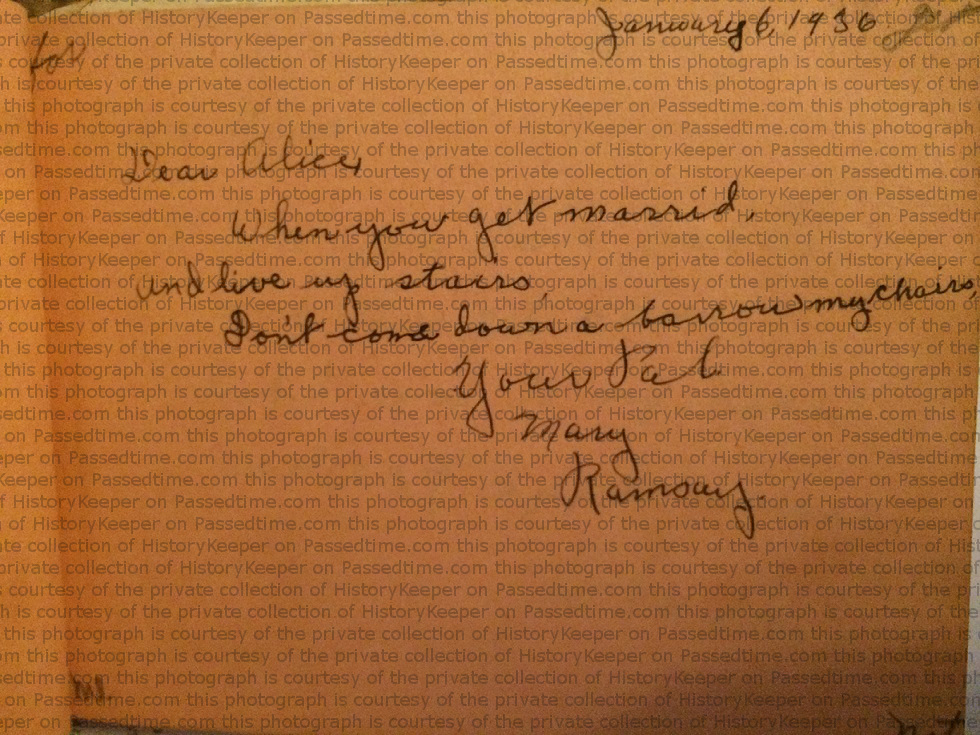 January 6, 1936
Dear Alice,
When you get marrid,
and live up stairs,
Don't come down a barrow my chairs,
Your Pal
Mary
Ramsay.
this photograph is courtesy of the private collection of HistoryKeeper on Passedtime.com